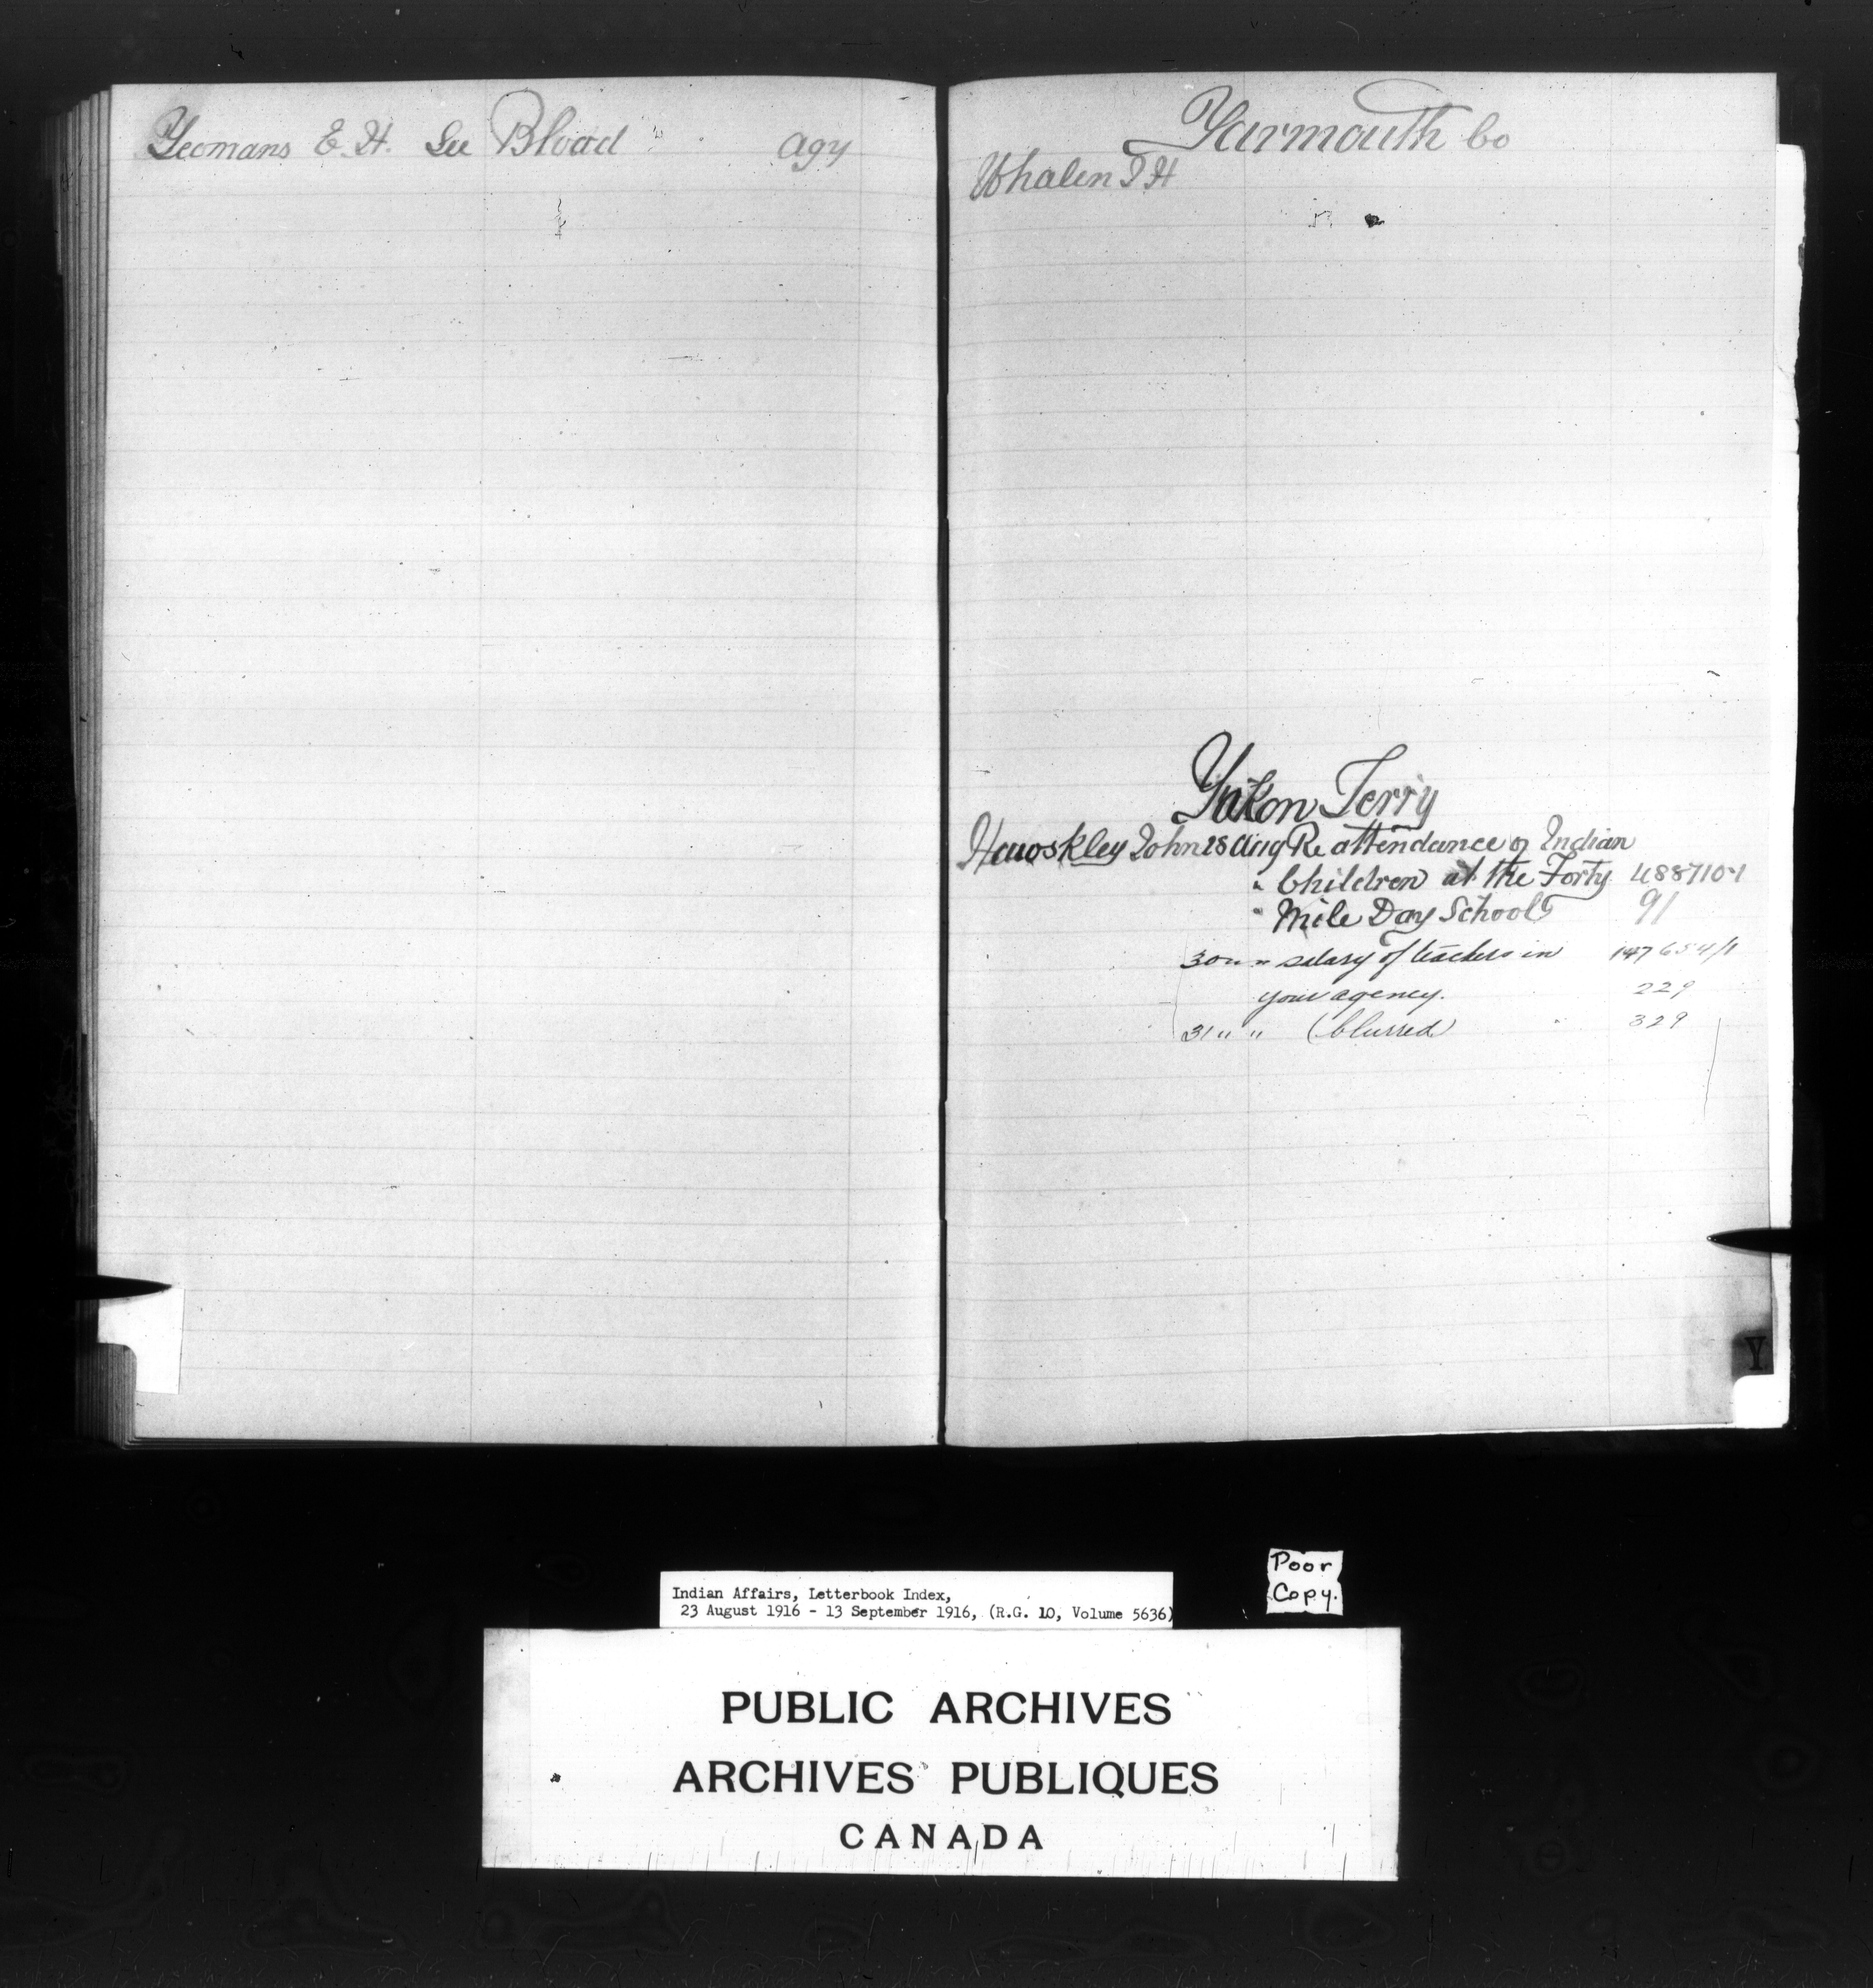 Yeomans E. H. See Blood agy
Yarmouth Co
Whalen T H
Yukon Terry
Hawksley John 28 Aug Re attendance of Indian
" Children at the Forty 488710-1
" Mile Day School 91
30 " " salary of teachers in 147654/1
your agency. 229
31 " " (blurred) 329
Y
Poor
Copy.
Indian Affairs, Letterbook Index,
23 August 1916 - 13 September 1916, (R.G. 10, Volume 5636)
PUBLIC ARCHIVES
ARCHIVES PUBLIQUES
CANADA